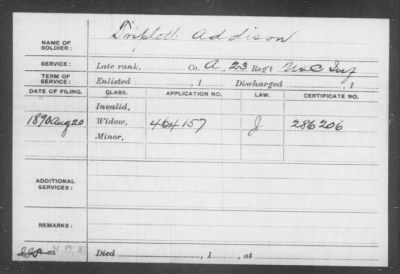 NAME OF SOLDIER: Triplett Addison
SERVICE: Late rank, Co. A, 23 Reg't U.S.C. Inf
TERM OF SERVICE: Enlisted , 1 Discharged , 1
DATE OF FILING. CLASS. APPLICATION NO. LAW. CERTIFICATE NO.
Invalid,
1890 Aug 20 Widow, 464157 J 286206
Minor,
ADDITIONAL SERVICES:
REMARKS:
Died , 1 , at